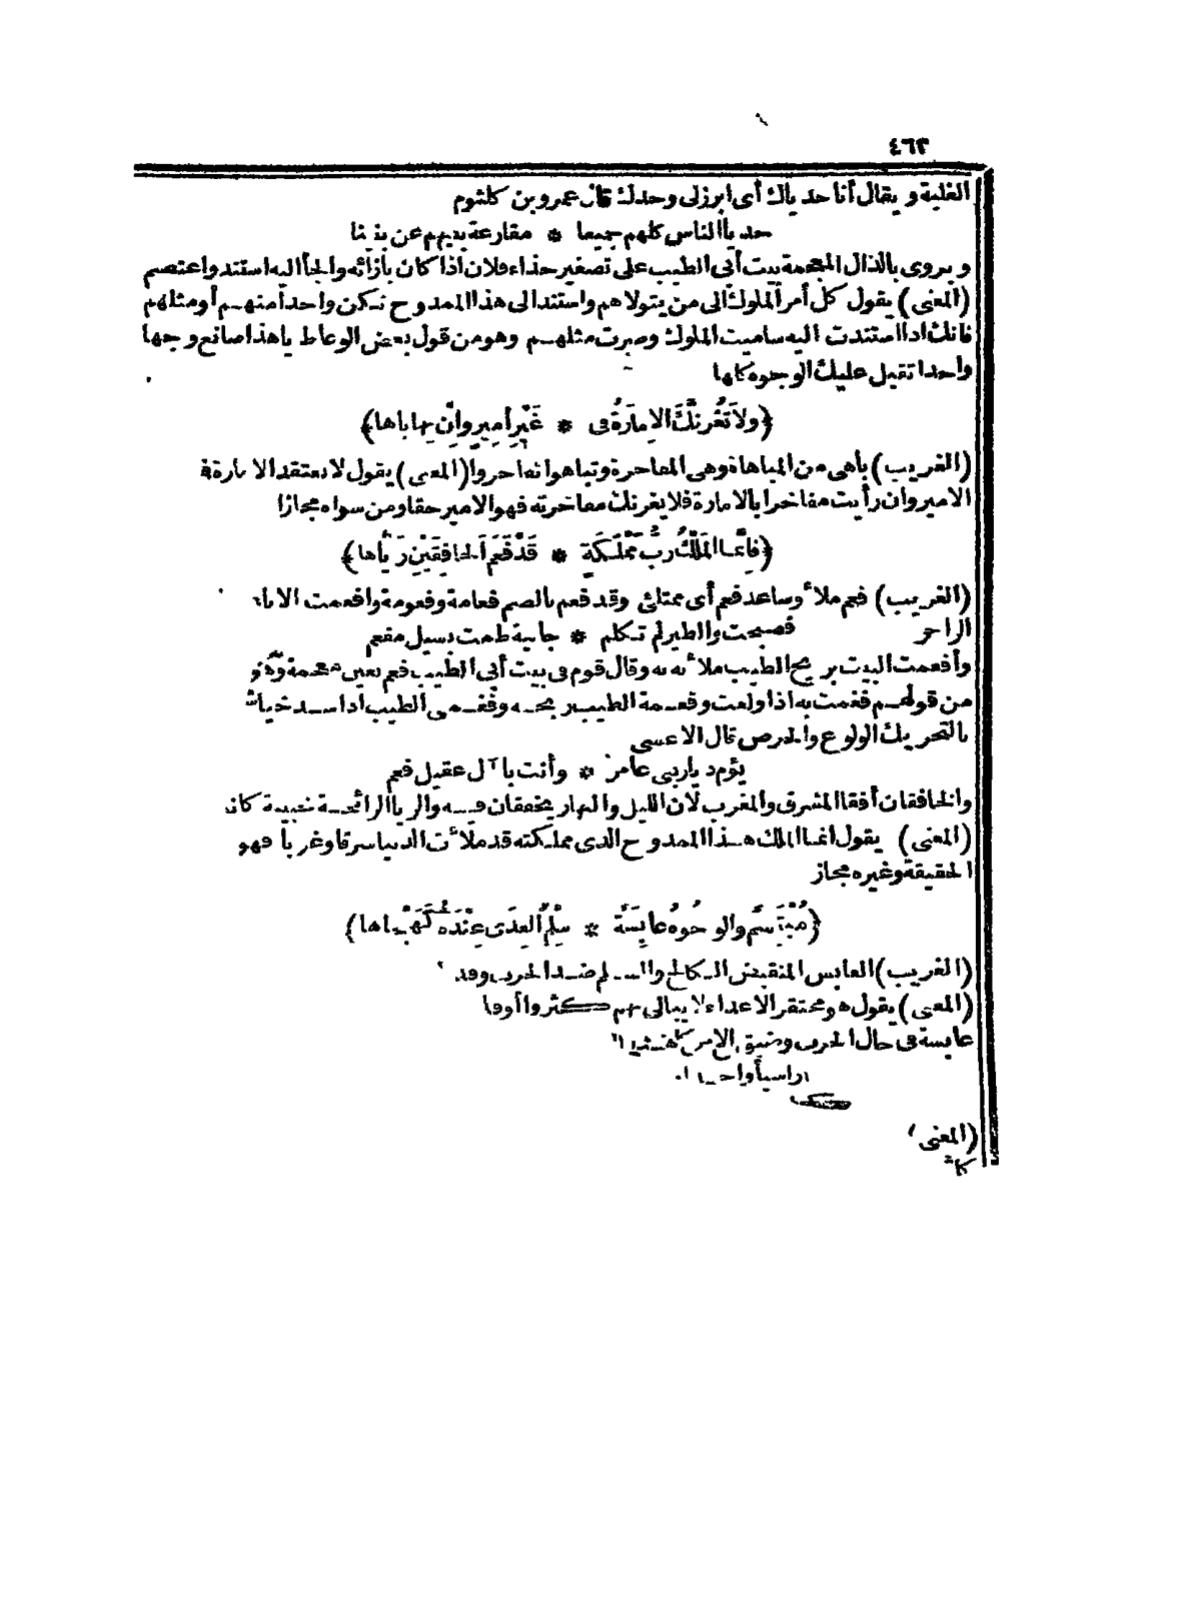 ٤٦٣
الغلبة ويقال أنا حدياك أى ابرزلى وحدك قال عمرو بن كلثوم
حديا الناس كلهم جميعا * مقارعة بنيهم عن بنينا
ويروى بالذال المعجمة بيت أبى الطيب على تصغير حذاء فلان اذا كان بأزائه والجأ اليه استند واعتصم
(المعنى) يقول كل أمر الملوك الى من يتولاهم واستند الى هذا الممدوح تكن واحدا منهم أو مثلهم
فانك اذا استندت اليه ساميت الملوك وصرت مثلهم وهو من قول بعض الوعاظ يا هذا صانع وجها
واحدا تقبل عليك الوجوه كلها
﴿ولا تَغُرَّنَّكَ الامارَةُ فى * غَيْرِ أميرٍ وانْ بِها باها﴾
(الغريب) باهى من المباهاة وهى المفاخرة وتباهوا تفاخروا (المعنى) يقول لا تعتقد الامارة فة
الامير وان رأيت مفاخرا بالامارة فلا يغرنك مفاخرته فهو الامير حقا ومن سواه مجازا
﴿فانَّما المَلْكُ رَبُّ مَمْلَكَةٍ * قَدْ فَعَمَ الخافِقَيْنِ رَيَّاها﴾
(الغريب) فعم ملأ وساعد فعم أى ممتلئ وقد فعم بالضم فعامة وفعومة وافعمت الاناء
الراجز
فصبحت والطير لم تكلم * جابية طمت بسيل مفعم
وأفعمت البيت بريح الطيب ملأته به وقال قوم فى بيت أبى الطيب فعم بغين معجمة
من قولهم فغمت به اذا ولعت وفغمة الطيب ريحه وفغمنى الطيب اذا سد خياش
بالتحريك الولوع والحرص قال الاعشى
يؤم ديار بنى عامر * وأنت بآل عقيل فغم
والخافقان أفقا المشرق والمغرب لان الليل والنهار يخفقان فيه والريا الرائحة
(المعنى) يقول انما الملك هذا الممدوح الذى مملكته قد ملأت الدنيا شرقا وغربا فهو
الحقيقة وغيره مجاز
﴿مُبْتَسِمٌ والوجُوهُ عابِسَةٌ * سِلْمُ العِدَى عِنْدَهُ كَهَيْجاها﴾
(الغريب) العابس المنقبض الكالح والسلم ضد الحرب وقد
(المعنى) يقول هو محتقر الاعداء لا يبالى بهم كثروا أو
عابسة فى حال الحرب وضيق الامر
(المعنى)